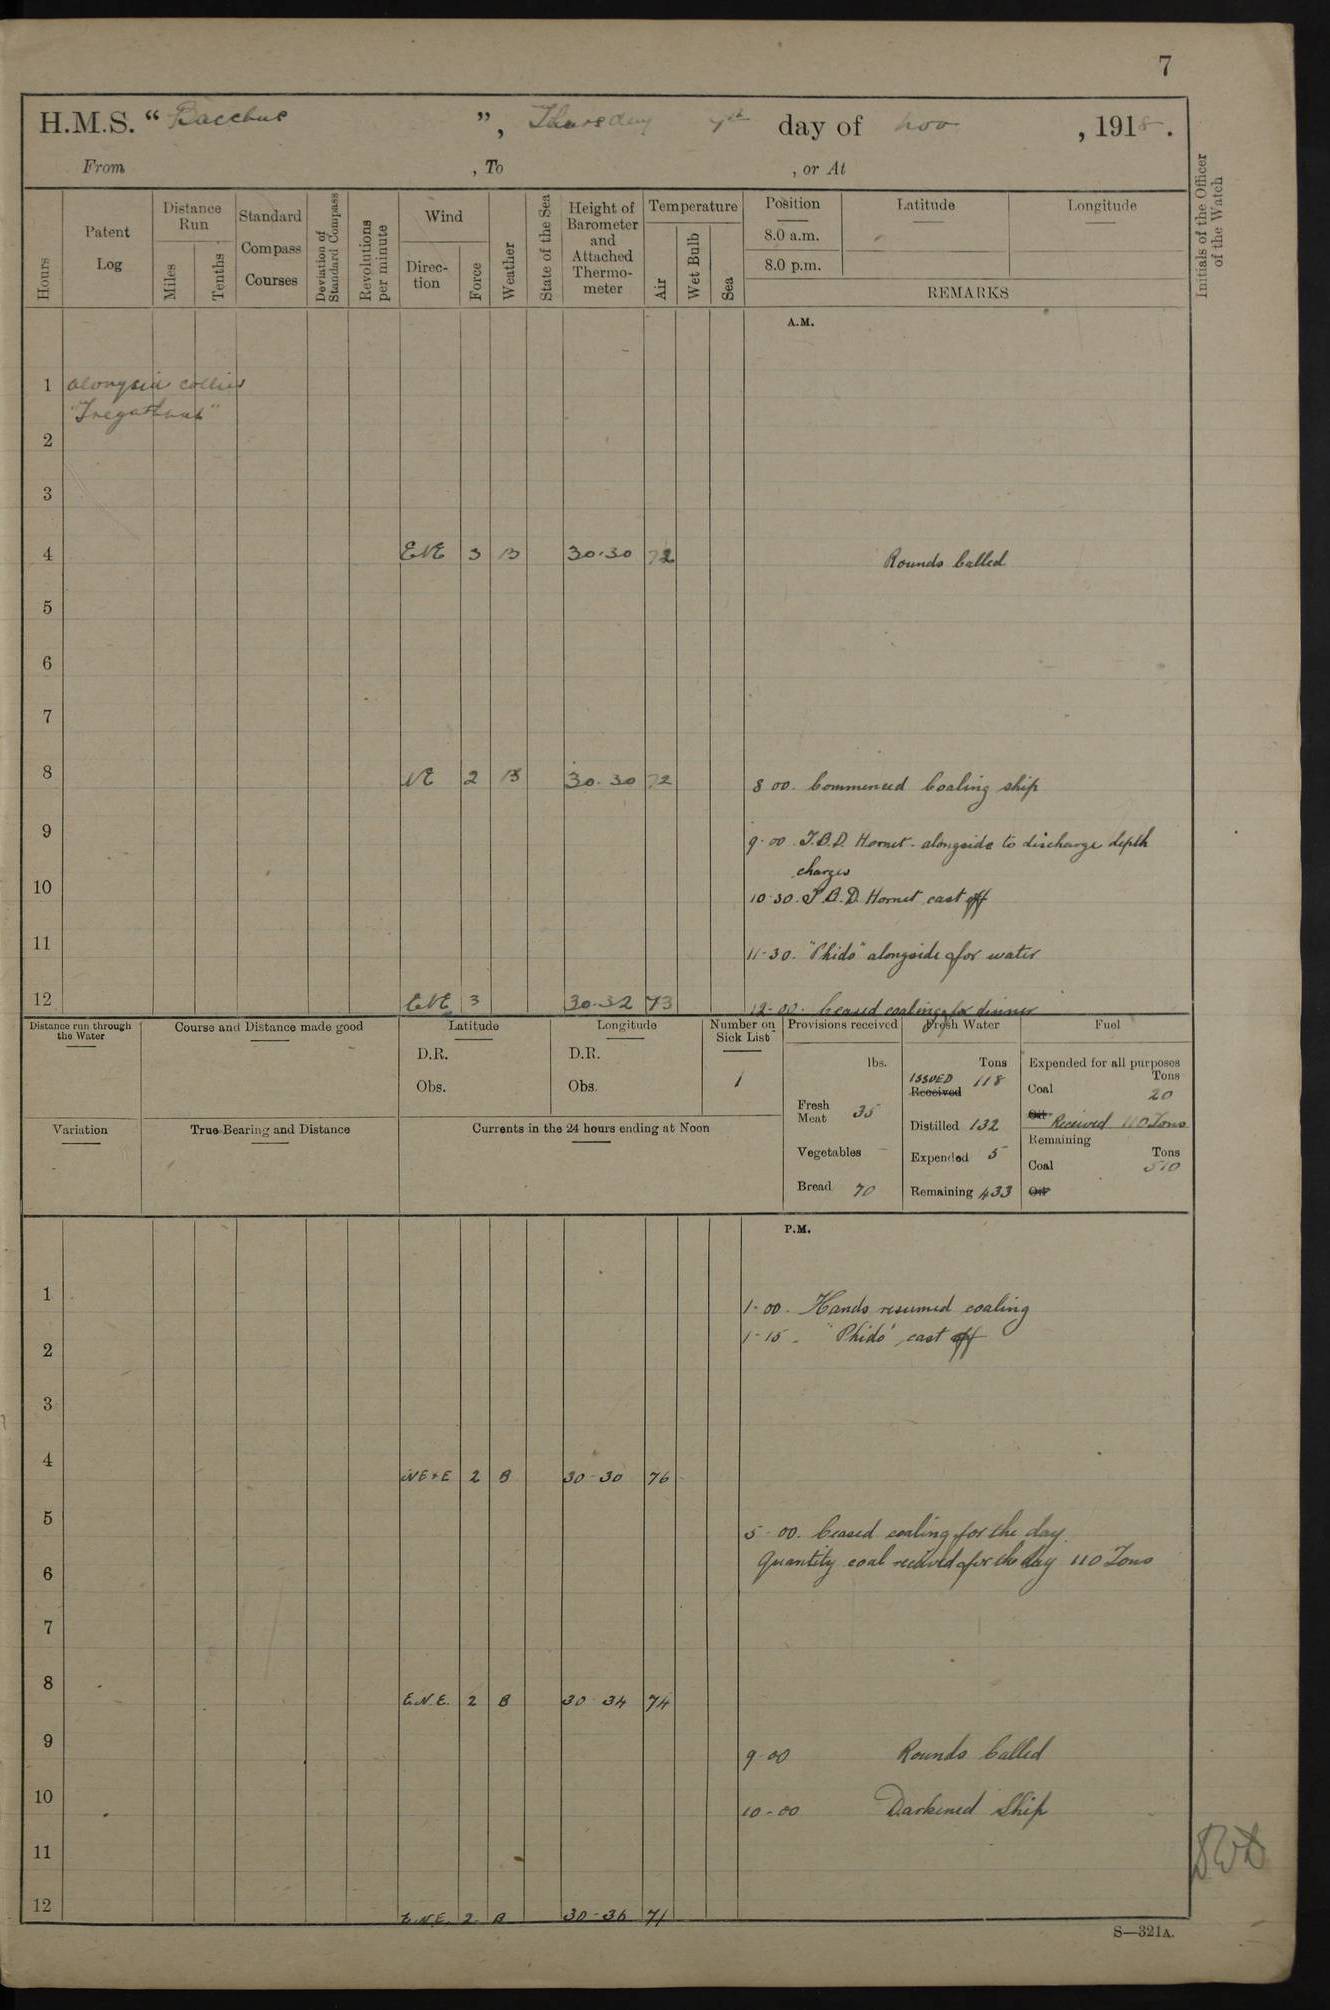 7
H.M.S. “ Bacchus ”, Thursday 7th day of Nov , 1918.
From , To , or At
Hours
Patent Log
Distance Run
Miles
Tenths
Standard Compass Courses
Deviation of Standard Compass
Revolutions per minute
Wind
Direc- tion
Force
Weather
State of the Sea
Height of Barometer and Attached Thermo- meter
Temperature
Air
Wet Bulb
Sea
Position
8.0 a.m.
8.0 p.m.
Latitude
Longitude
REMARKS
Initials of the Officer of the Watch
A.M.
1 alongside collier
2
3
4 ENE 3 B 30.30 72 Rounds Called
5
6
7
8 NE 2 B 30.30 72 8 00. Commenced Coaling ship
9 9-00. T.B.D. Hornet alongside to discharge depth
charges
10 10-30. T.B.D. Hornet cast off
11 11-30. "Phido" alongside for water
12 ENE 3 30-32 73 12-00. Ceased coaling for dinner
Distance run through the Water
Course and Distance made good
Latitude
D.R.
Obs.
Longitude
D.R.
Obs.
Number on Sick List
1
Provisions received
lbs.
Fresh Meat 35
Vegetables -
Bread 70
Fresh Water
Tons
ISSUED 118
Received
Distilled 132
Expended 5
Remaining 433
Fuel
Expended for all purposes
Tons
Coal 20
Oil Received 110 Tons
Remaining
Tons
Coal 510
Oil
Variation
True Bearing and Distance
Currents in the 24 hours ending at Noon
P.M.
1 1-00. Hands resumed coaling
1-15. "Phido" cast off
2
3
4 NE+E 2 B 30-30 76
5 5-00. Ceased coaling for the day.
Quantity coal received for the day 110 Tons
6
7
8 E.N.E. 2 B 30 34 74
9 9-00 Rounds Called
10 10-00 Darkened Ship
11
12 E.N.E. 2 B 30-36 71
S—321A.